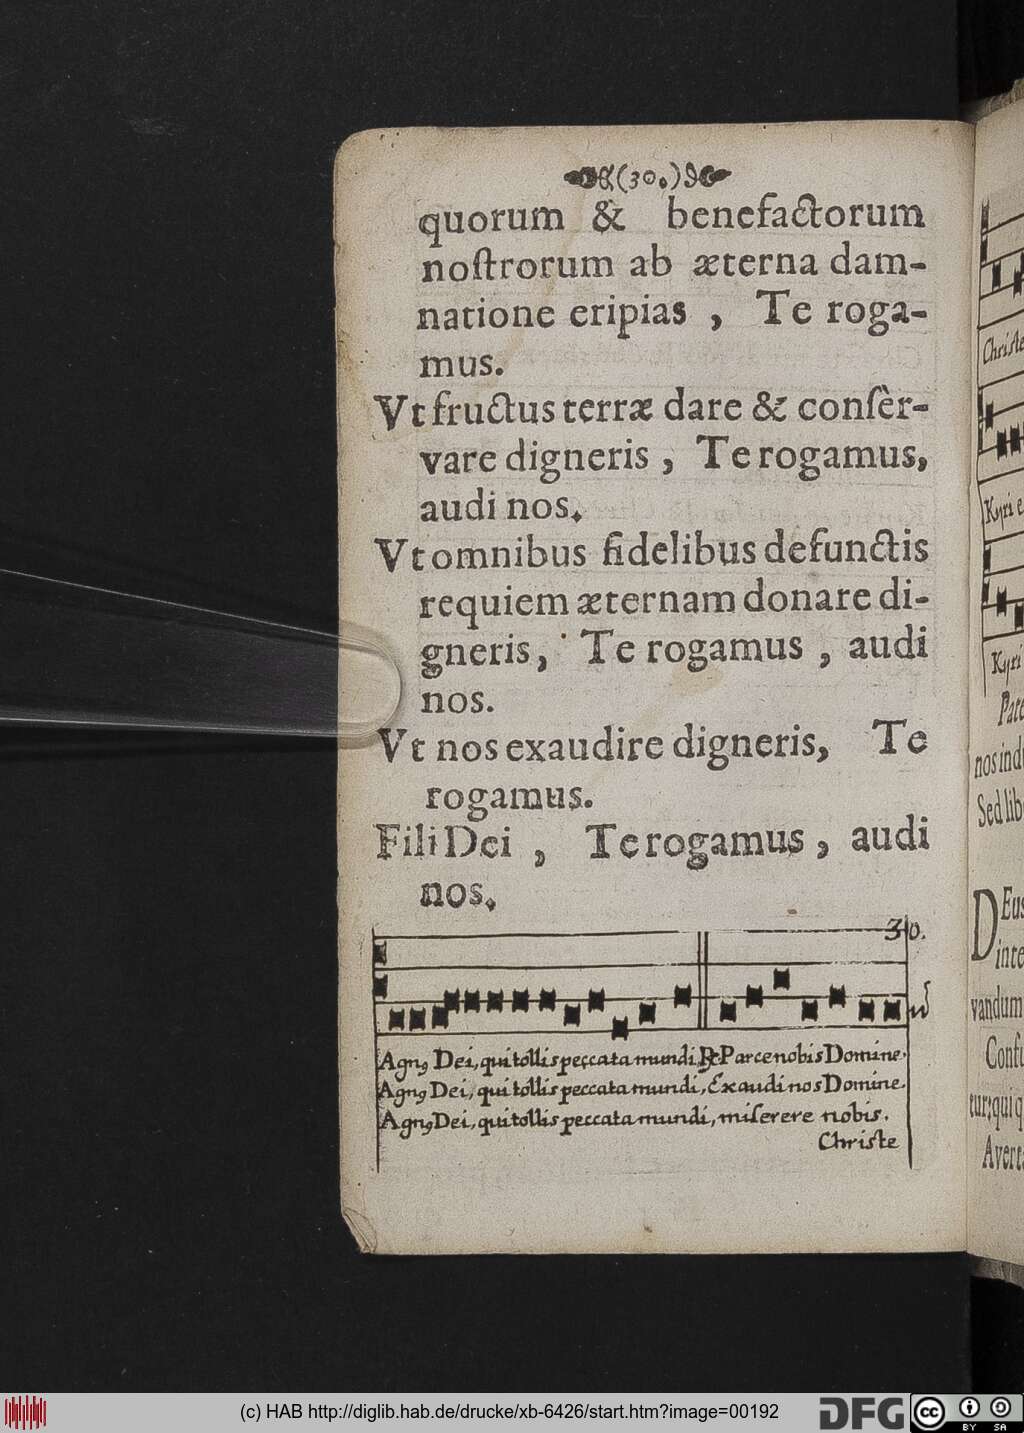 (30.)
quorum & benefactorum
noſtrorum ab æterna dam-
natione eripias , Te roga-
mus.
Vt fructus terræ dare & conſèr-
vare digneris , Te rogamus,
audi nos.
Vt omnibus fidelibus defunctis
requiem æternam donare di-
gneris, Te rogamus , audi
nos.
Vt nos exaudire digneris, Te
rogamus.
Fili Dei , Te rogamus , audi
nos.
30.
Agnꝰ Dei, qui tollis peccata mundi, ℟. Parce nobis Domine.
Agnꝰ Dei, qui tollis peccata mundi, Exaudi nos Domine.
Agnꝰ Dei, qui tollis peccata mundi, miſerere nobis.
Chriſte
Chriſte
Kyri e
Kyri
Pate
nos ind
Sed lib
DEus
inte
vandum
Conf
tur; qui q
Avert
(c) HAB http://diglib.hab.de/drucke/xb-6426/start.htm?image=00192
DFG
cc
BY SA